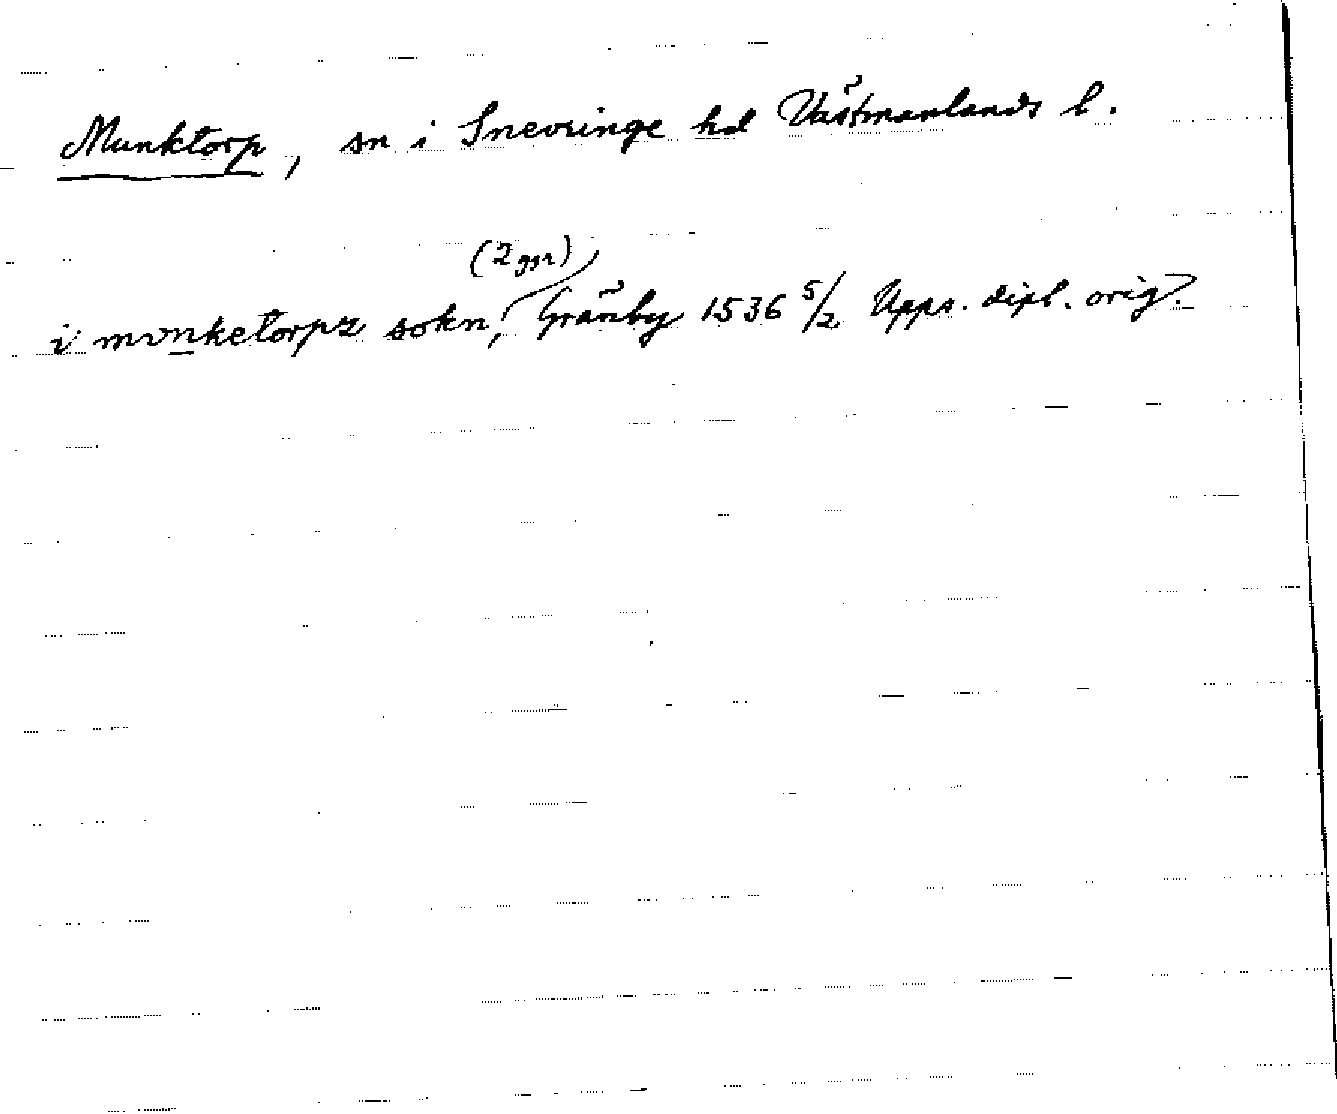 Munktorp, sn i Snevringe hd Västmanlands l.
(2 ggr)
i mvnketorpz sokn, Gränby 1536 5/2 Upps. dipl. orig.